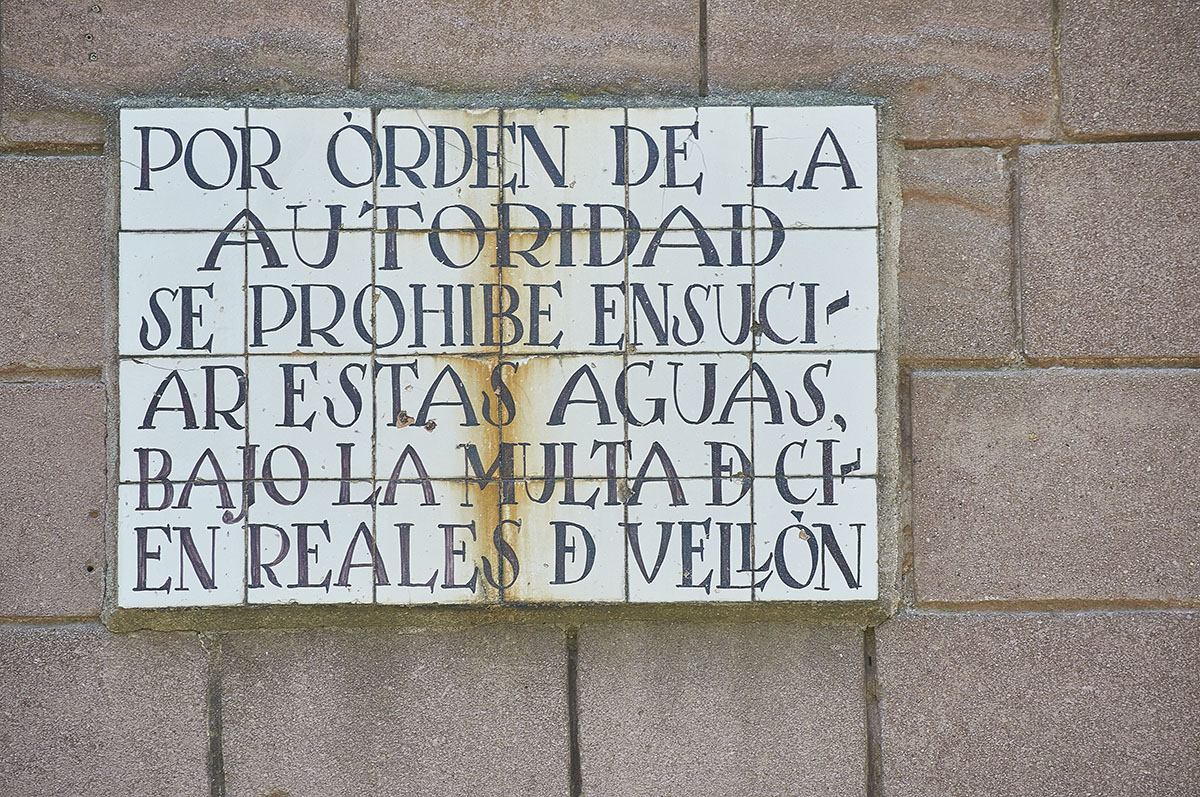 POR ÒRDEN DE LA
AUTORIDAD
SE PROHIBE ENSUCI-
AR ESTAS AGUAS,
BAJO LA MULTA DE CI-
EN REALES DE VELLÒN